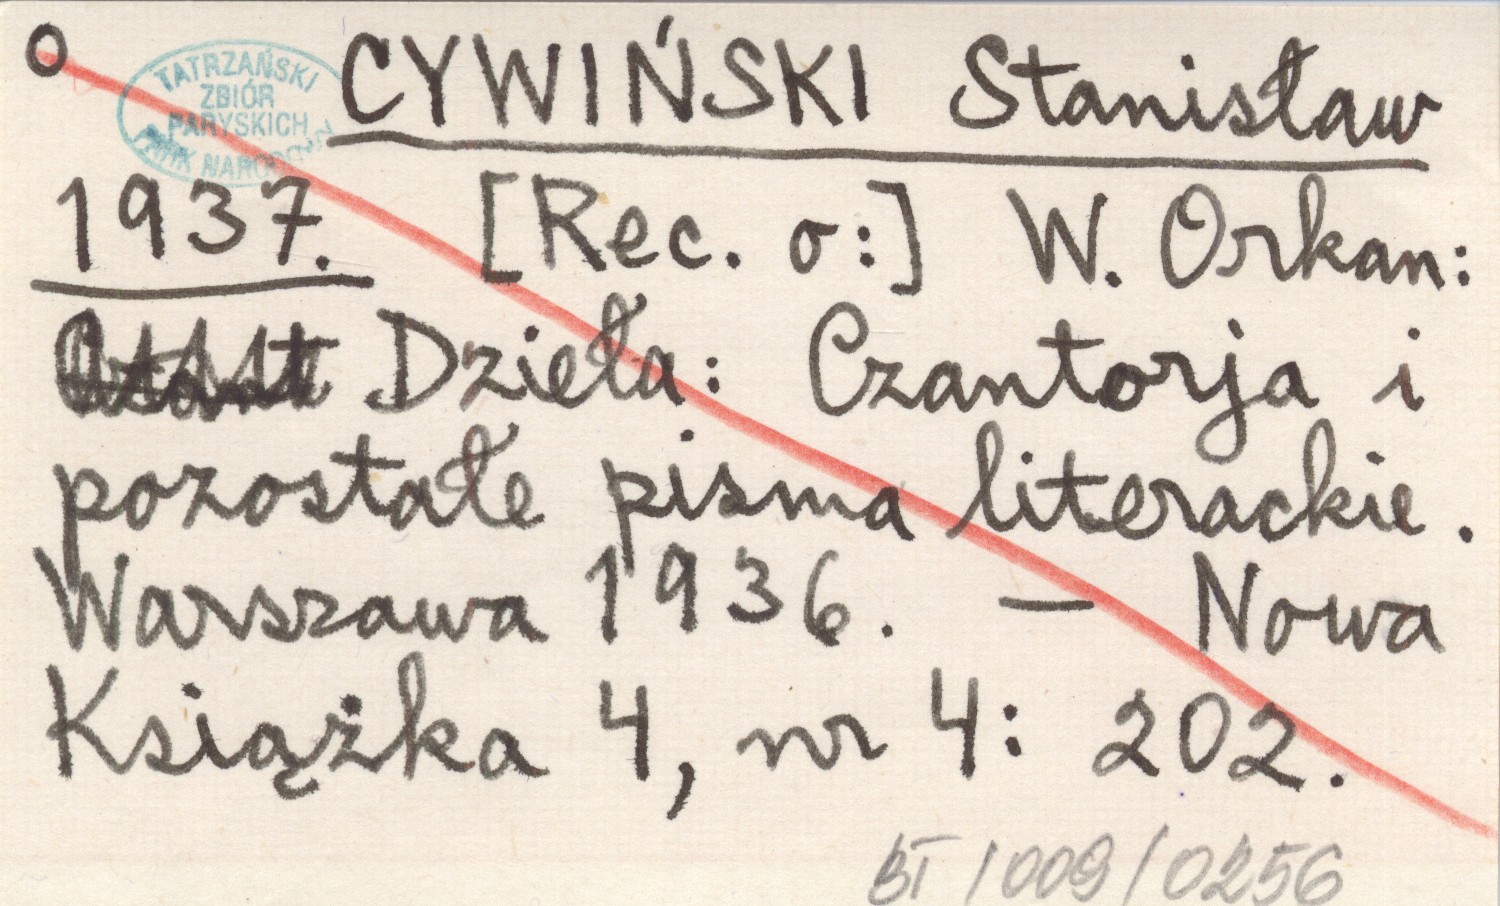 O
TATRZAŃSKI
ZBIÓR
PARYSKICH
PARK NARODOWY
CYWIŃSKI Stanisław
1937. [Rec. o:] W. Orkan:
Dzieła: Czantorja i
pozostałe pisma literackie.
Warszawa 1936. — Nowa
Książka 4, nr 4: 202.
BT/009/0256